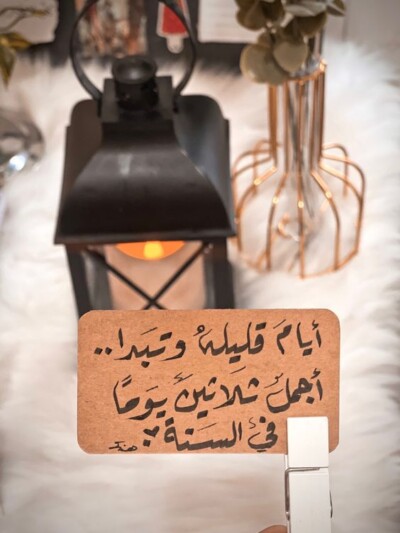 أيامَ قليلهُ وتبَدا..
أجملُ ثلاثينَ يَومًا
فيُ السَنة